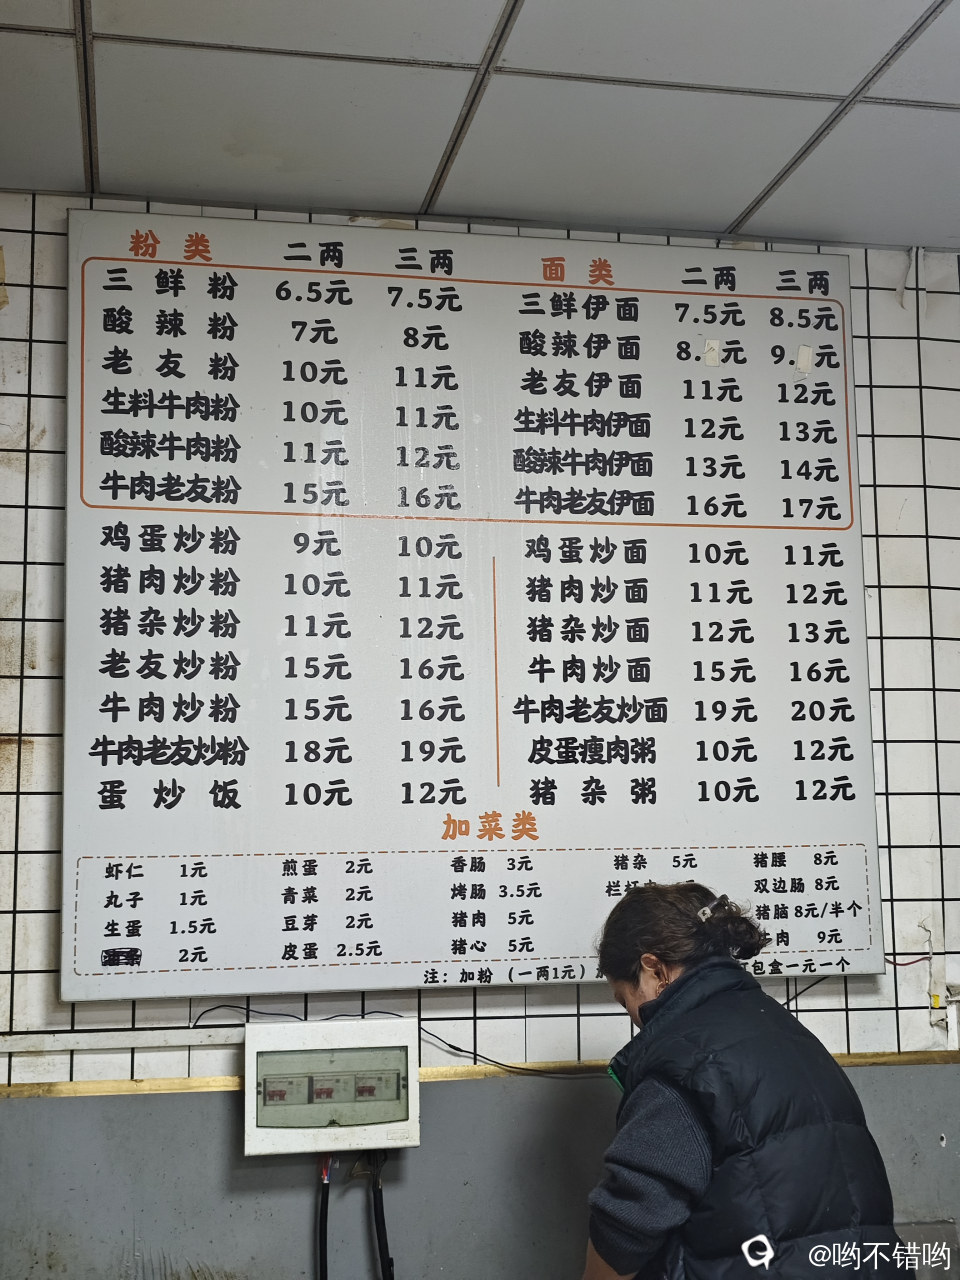 粉类 二两 三两
三鲜粉 6.5元 7.5元
酸辣粉 7元 8元
老友粉 10元 11元
生料牛肉粉 10元 11元
酸辣牛肉粉 11元 12元
牛肉老友粉 15元 16元
鸡蛋炒粉 9元 10元
猪肉炒粉 10元 11元
猪杂炒粉 11元 12元
老友炒粉 15元 16元
牛肉炒粉 15元 16元
牛肉老友炒粉 18元 19元
蛋炒饭 10元 12元
面类 二两 三两
三鲜伊面 7.5元 8.5元
酸辣伊面 8.元 9.元
老友伊面 11元 12元
生料牛肉伊面 12元 13元
酸辣牛肉伊面 13元 14元
牛肉老友伊面 16元 17元
鸡蛋炒面 10元 11元
猪肉炒面 11元 12元
猪杂炒面 12元 13元
牛肉炒面 15元 16元
牛肉老友炒面 19元 20元
皮蛋瘦肉粥 10元 12元
猪杂粥 10元 12元
加菜类
虾仁 1元 煎蛋 2元 香肠 3元 猪杂 5元 猪腰 8元
丸子 1元 青菜 2元 烤肠 3.5元 双边肠 8元
生蛋 1.5元 豆芽 2元 猪肉 5元 猪脑 8元/半个
2元 皮蛋 2.5元 猪心 5元 肉 9元
注：加粉（一两1元） 包盒一元一个
@哟不错哟